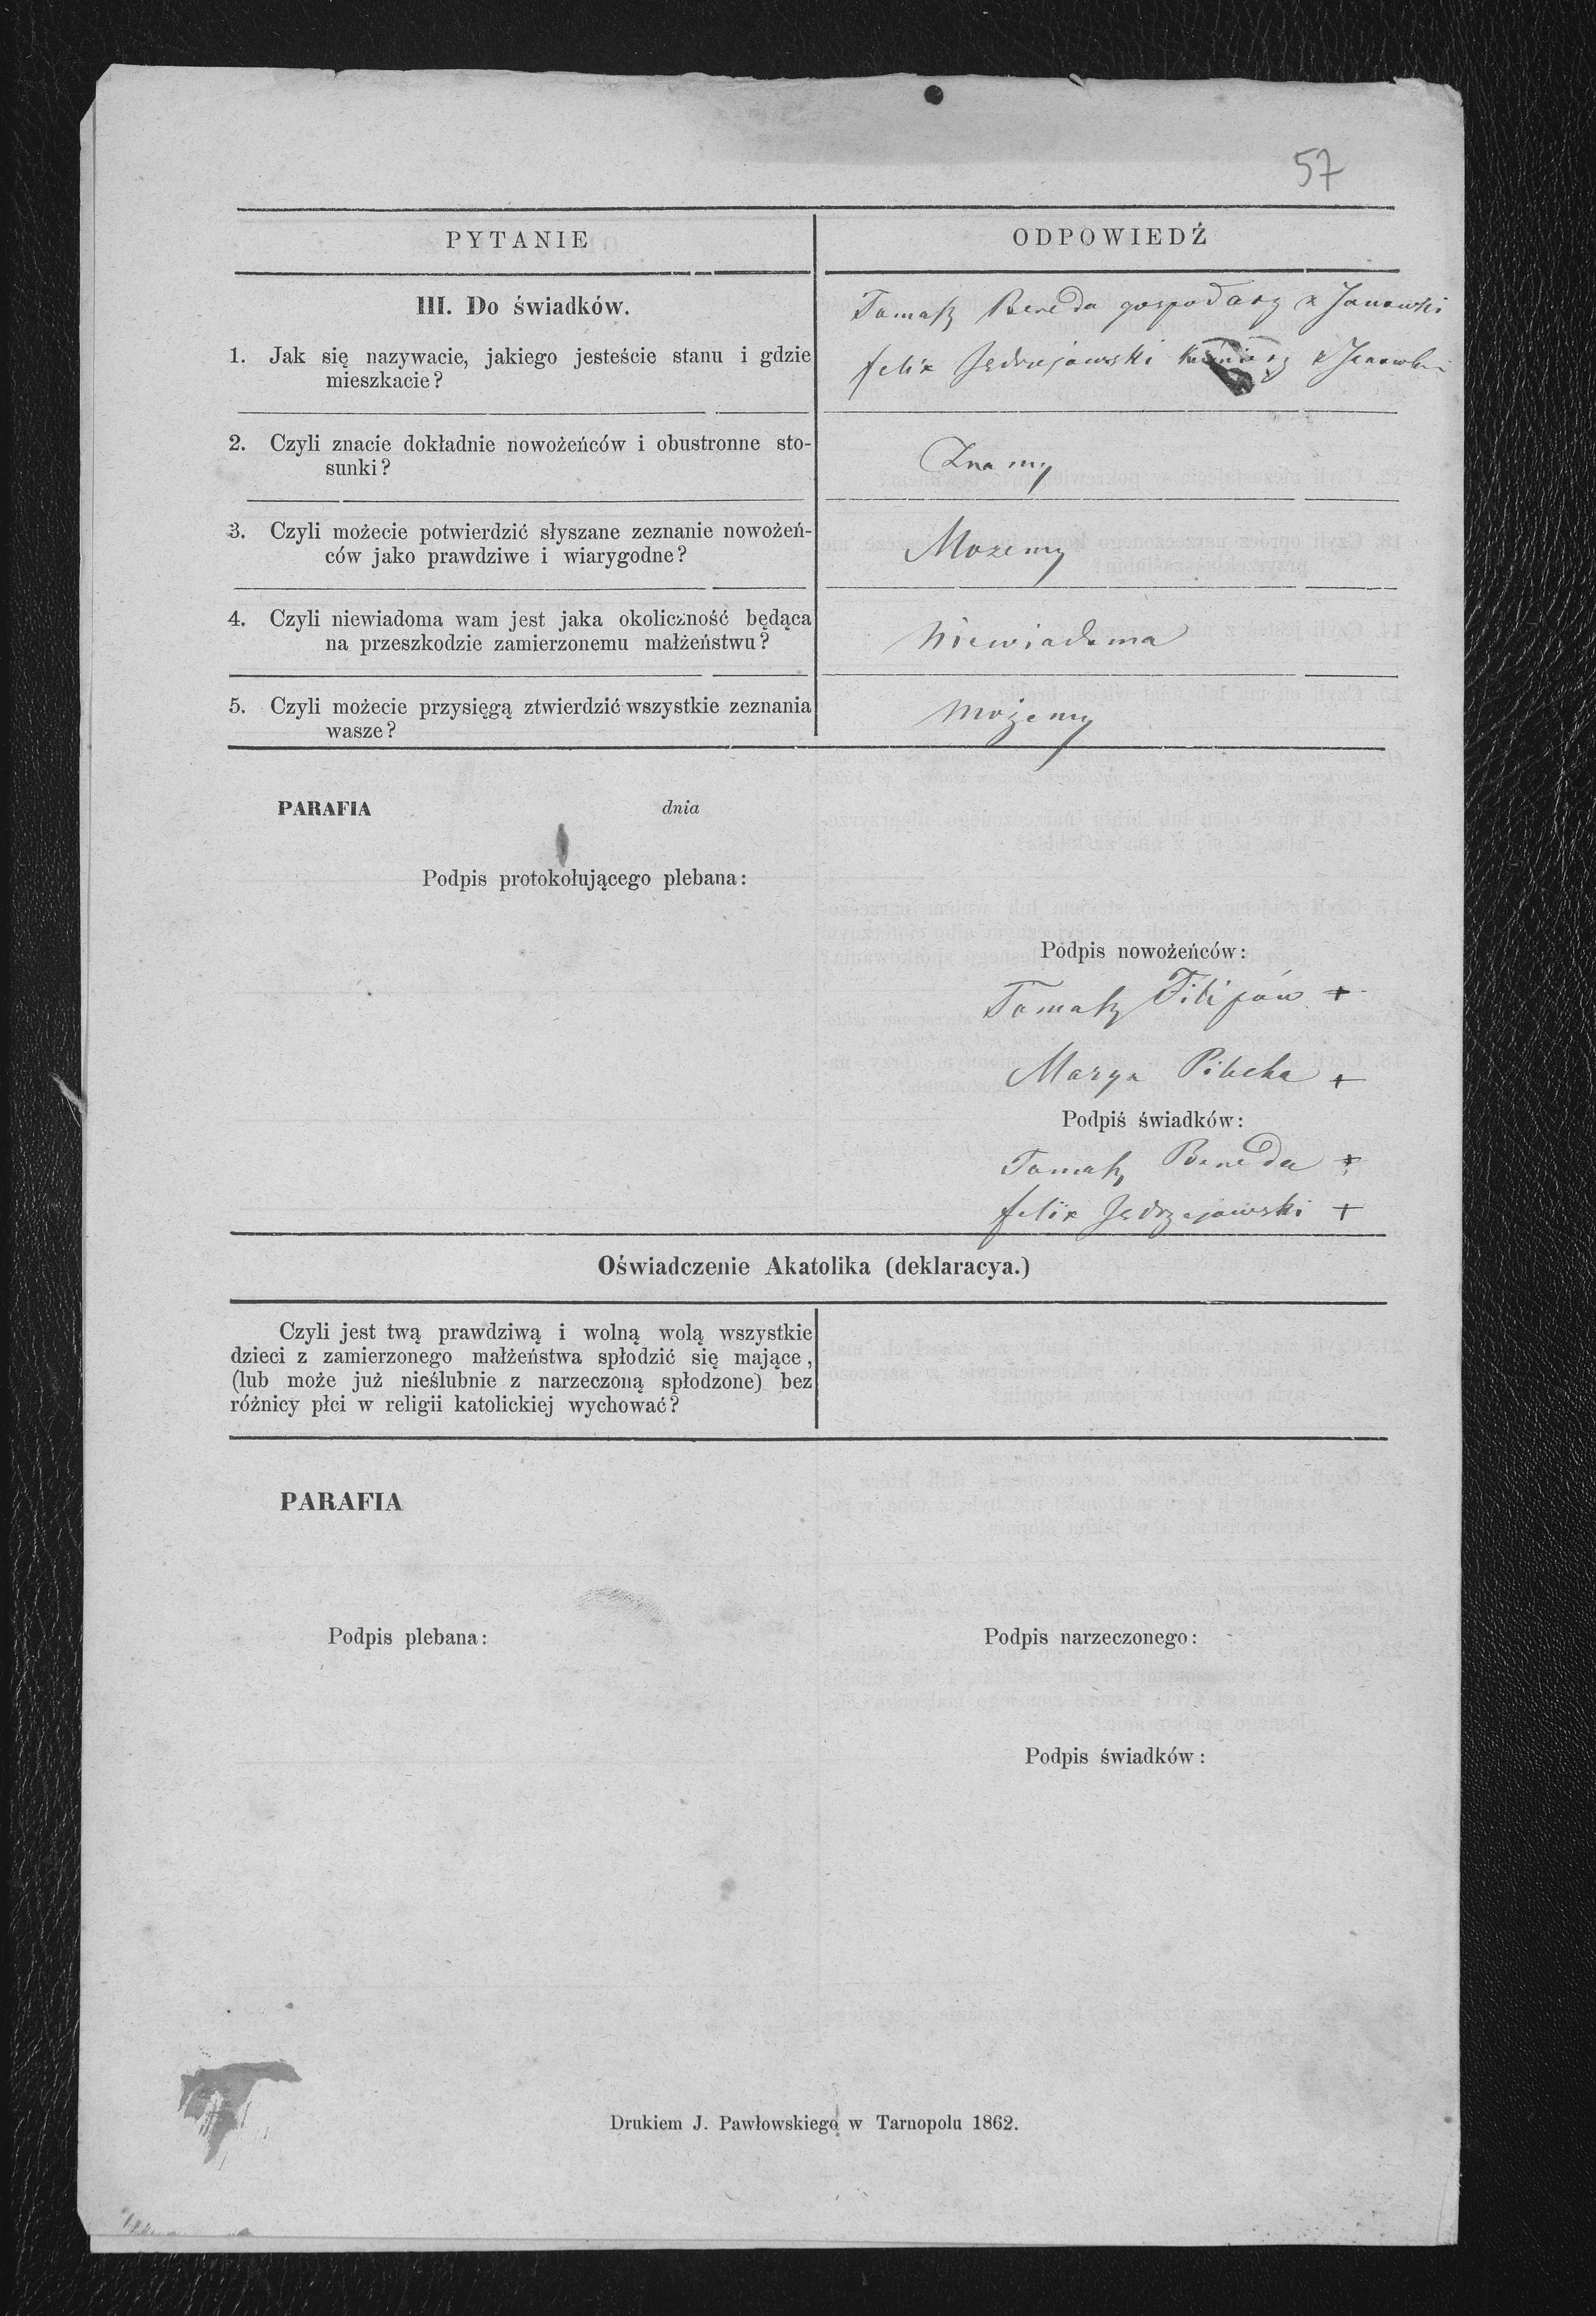 57
PYTANIE
ODPOWIEDŹ
III. Do świadków.
Tomasz Bereda gospodarz z Janówki
1. Jak się nazywacie, jakiego jesteście stanu i gdzie
mieszkacie?
felix Jędrzejowski z Janówki
2. Czyli znacie dokładnie nowożeńców i obustronne sto-
sunki?
Znamy
3. Czyli możecie potwierdzić słyszane zeznanie nowożeń-
ców jako prawdziwe i wiarygodne?
Mozemy
4. Czyli niewiadoma wam jest jaka okoliczność będąca
na przeszkodzie zamierzonemu małżeństwu?
Niewiadoma
5. Czyli możecie przysięgą ztwierdzić wszystkie zeznania
wasze?
Możemy
PARAFIA dnia
Podpis protokołującego plebana:
Podpis nowożeńców:
Tomasz Filipów +
Marya +
Podpiś świadków:
Tomasz Bereda +
felix Jędrzejowski +
Oświadczenie Akatolika (deklaracya.)
Czyli jest twą prawdziwą i wolną wolą wszystkie
dzieci z zamierzonego małżeństwa spłodzić się mające,
(lub może już nieślubnie z narzeczoną spłodzone) bez
różnicy płci w religii katolickiej wychować?
PARAFIA
Podpis plebana:
Podpis narzeczonego:
Podpis świadków:
Drukiem J. Pawłowskiego w Tarnopolu 1862.